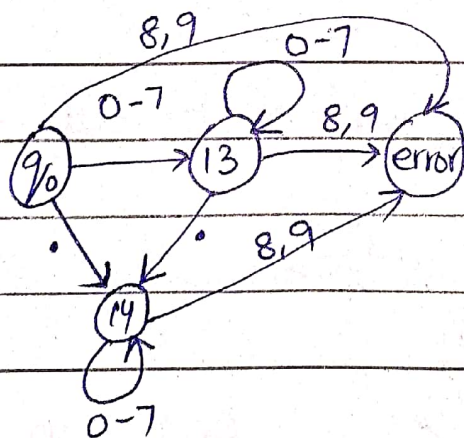 8,9
0-7
0-7
8,9
%
13
error
.
.
8,9
14
0-7